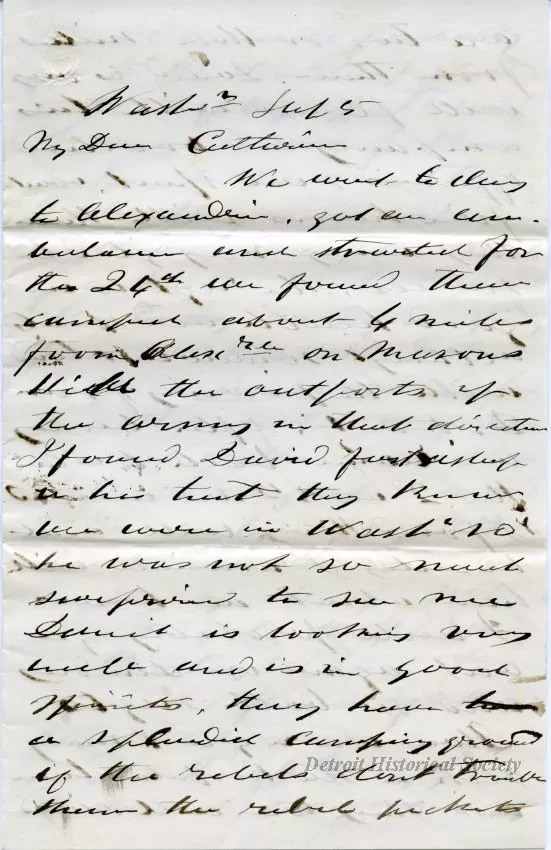 Washn Sep 5
My Dear Catherine
We went to day
to Alexandria, got an am-
bulance and started for
the 24th we found them
camped about 4 miles
from Alexria on Masons
Hill the outposts of
the army in that direction
I found David fast asleep
in his tent they knew
we were in Washn so
he was not so much
surprised to see me
David is looking very
well and is in good
spirits, they have
a splendid camping ground
if the rebels dont trouble
them, the rebel pickets
Detroit Historical Society